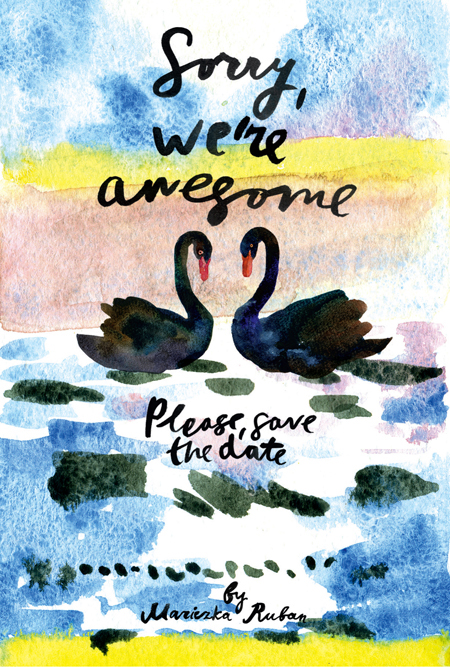 Sorry,
we're
awesome
Please, save
the date
by
Mariczka Ruban